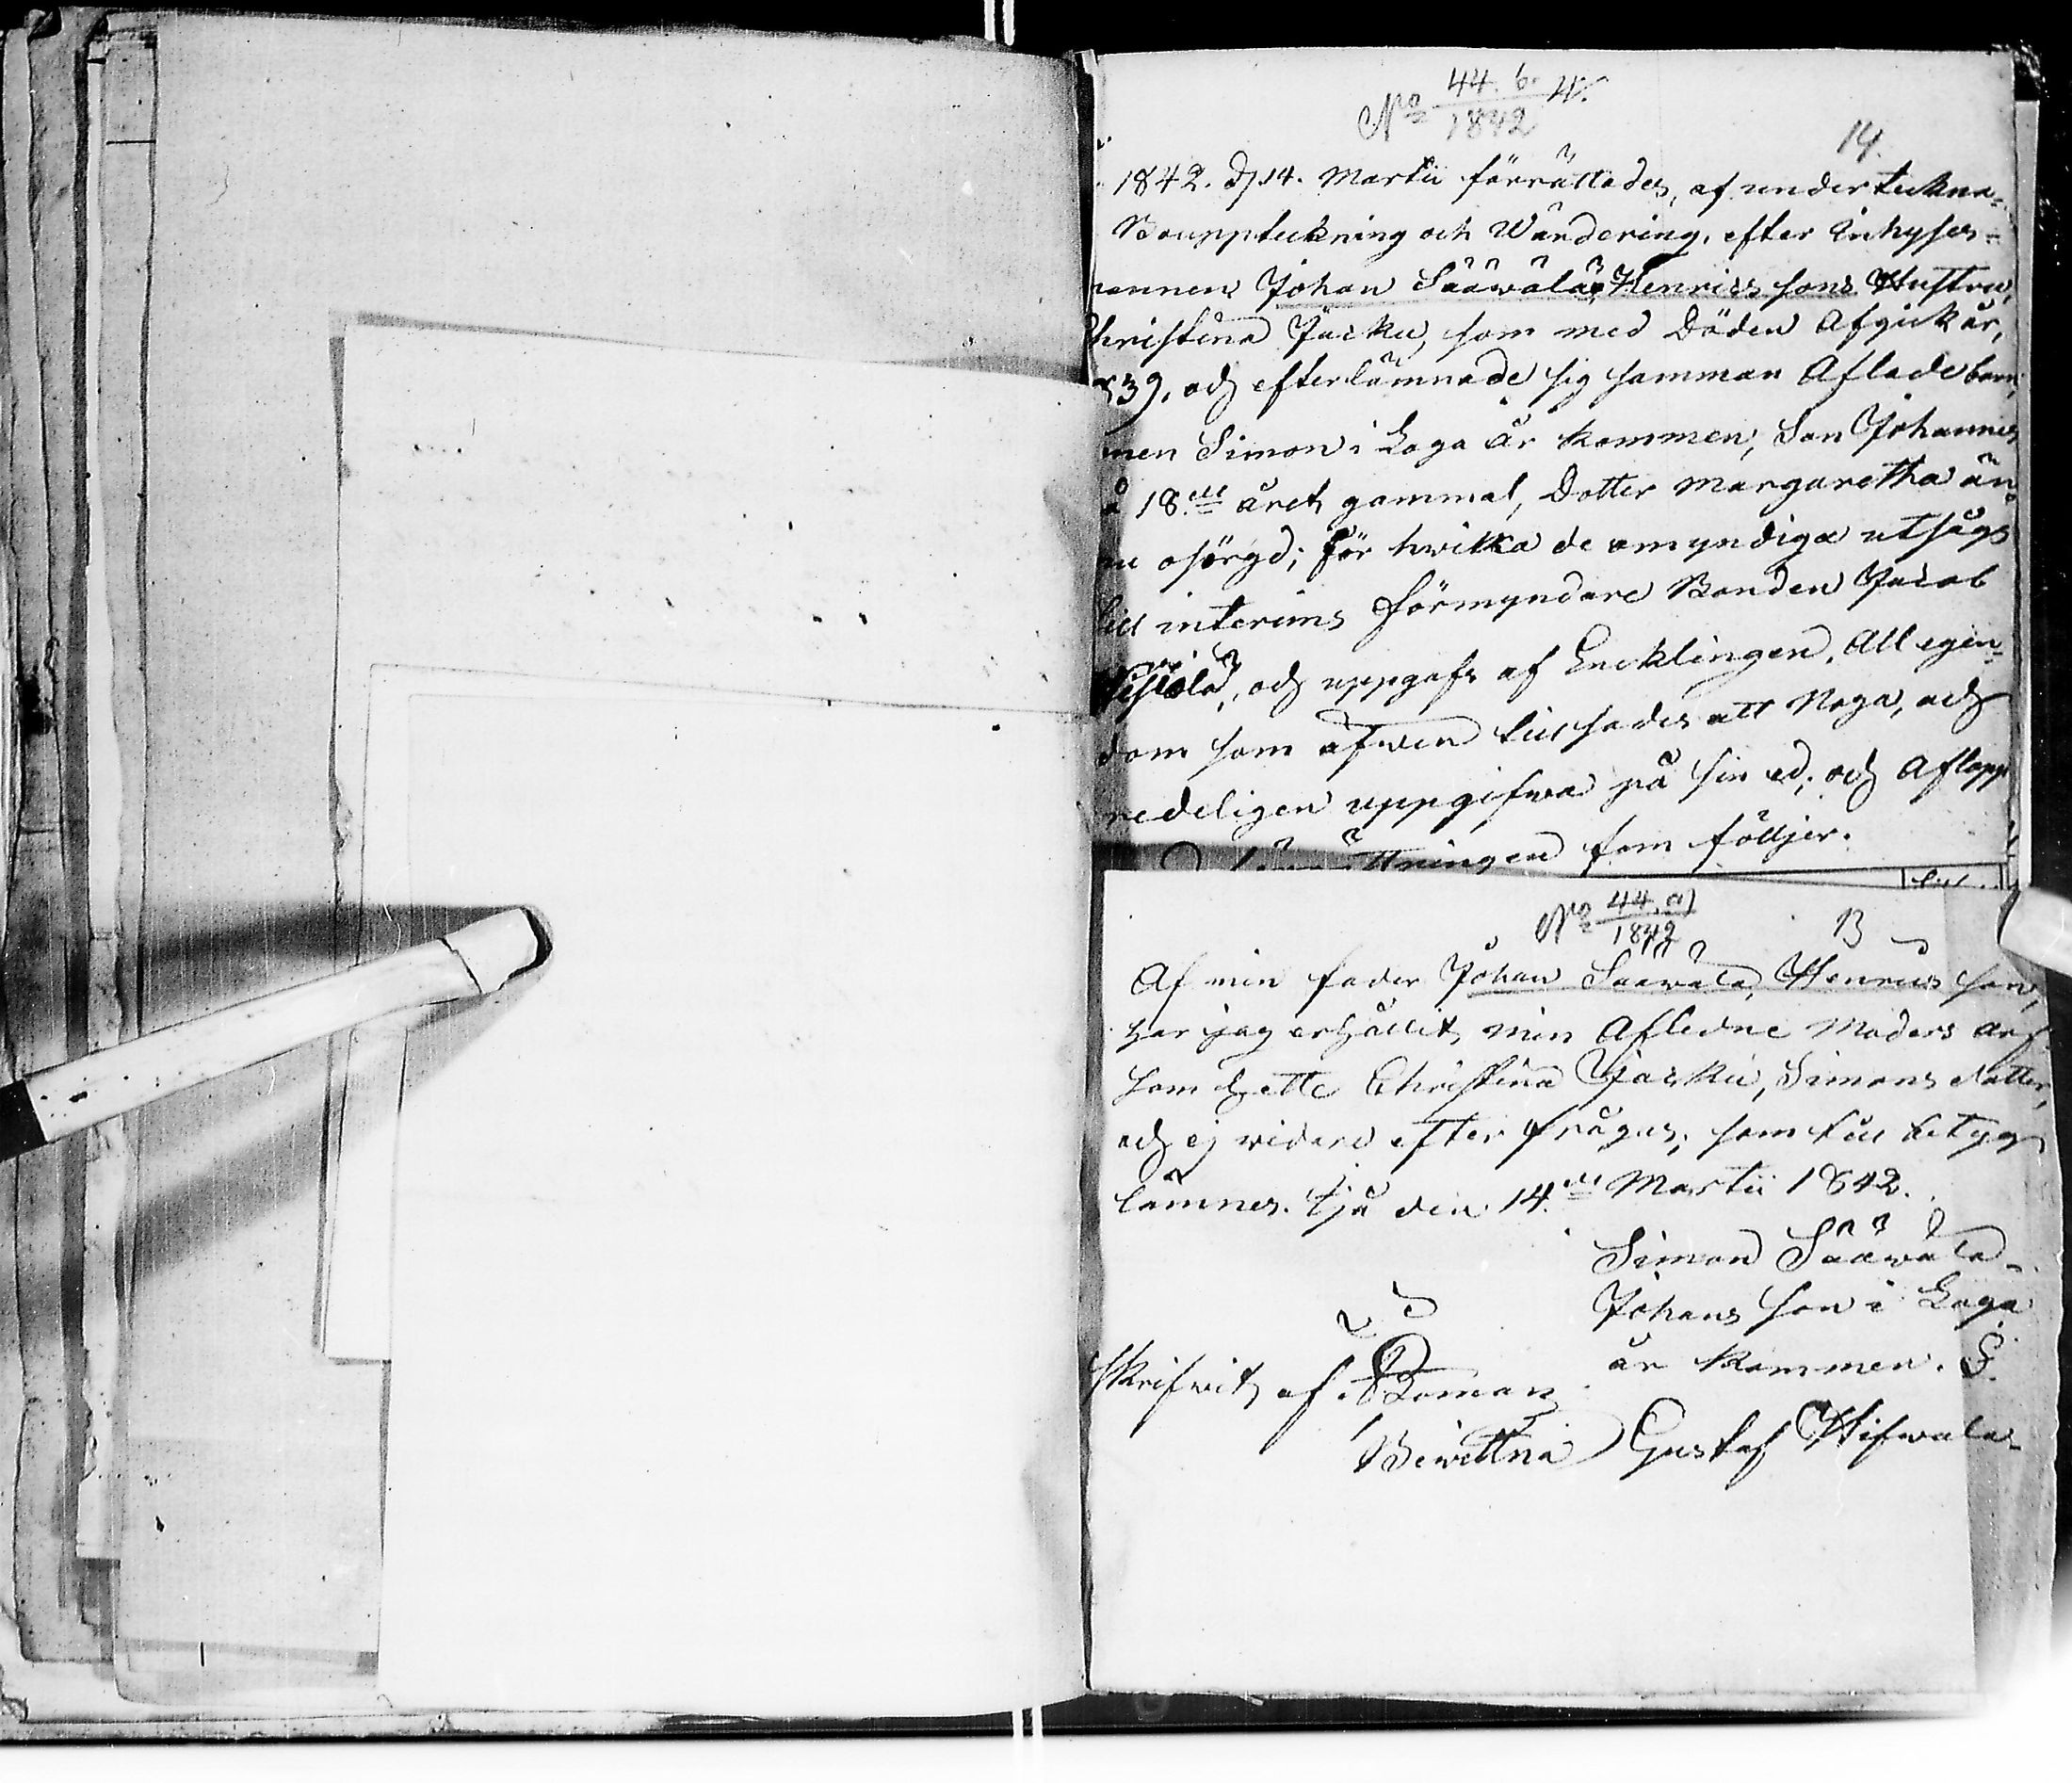 No 44. b. 4.
1842
14.
1842. d 14. Martii förrättades, af underteckna-
Bouppteckning och Wärdering, efter Inhyses-
mannen Johan Sääwälä, Henrics sons Hustru,
Christina Jäcku, som med Döden Afgick år,
839, och efterlämnade sig samman Aflade barn,
men Simon i Laga år kommen, Son Johannes
å 18.de året gammal, Dotter Margaretha än-
nu osörgd; För hwilka de omyndiga utsågs
till interims Förmyndare Bonden Jacob
och uppgafs af Encklingen, All egen-
dom som äfwen tillsades att Noga, och
redeligen uppgifwa på sin ed; och Aflopp
ttningen som följer.
No 44. a)
1842
13
Af min fader Johan Sääwälä, Henrics son,
har jag erhållit, min Afledne Moders arf
som hette Christina Jäcku, Simons dotter,
och ej widare efter frågas; som till betyg
lämnes. Ijå den 14.de Martii 1842.
Simon Sääwälä
Johans son i Laga
år kommen. S.
skrifwit af Roman
Bewittna Gustaf Hifwala